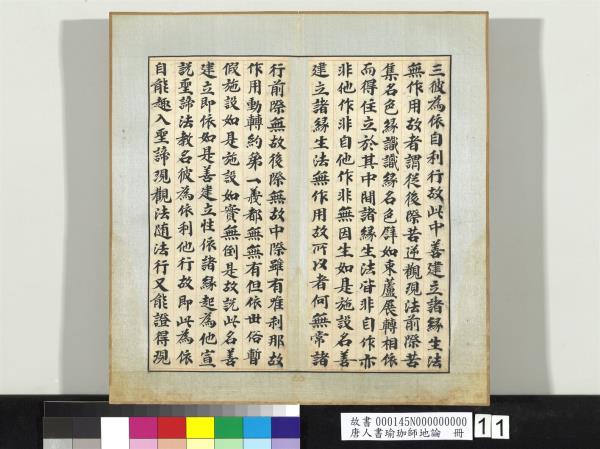 三彼為依自利行故此中善建立諸緣生法
無作用故者謂從後際苦逆觀現法前際苦
集名色緣識識緣名色譬如束蘆展轉相依
而得住立於其中間諸緣生法皆非自作亦
非他作非自他作非無因生如是施設名善
建立諸緣生法無作用故所以者何無常諸
行前際無故後際無故中際雖有唯剎那故
作用動轉約弟一義都無無有但依世俗暫
假施設如是施設如實無倒是故說此名善
建立即依如是善建立性依諸緣起為他宣
說聖諦法教名彼為依利他行故即此為依
自能趣入聖諦現觀法隨法行又能證得現
故書 000145N000000000
唐人書瑜珈師地論 冊
11